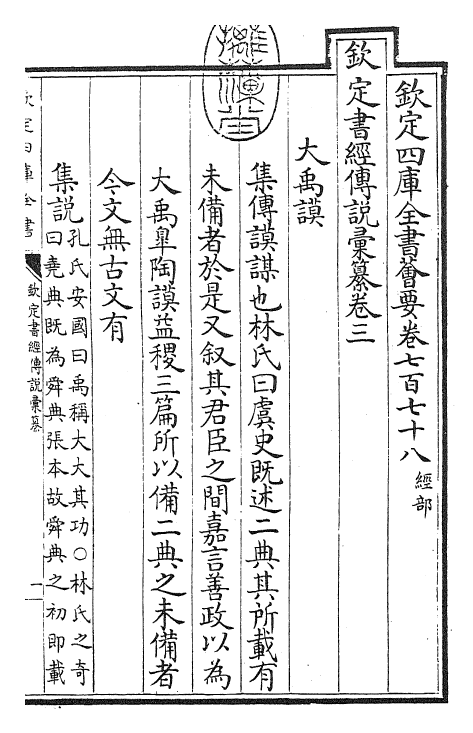 欽定四庫全書薈要卷七百七十八 經部
欽定書經傳說彙纂卷三
大禹謨
集傳謨謀也林氏曰虞史既述二典其所載有
未備者於是又叙其君臣之間嘉言善政以為
大禹皐陶謨益稷三篇所以備二典之未備者
今文無古文有
集說孔氏安國曰禹稱大大其功○林氏之奇
曰堯典既為舜典張本故舜典之初即載
欽定四庫全書
欽定書經傳說彙纂
一